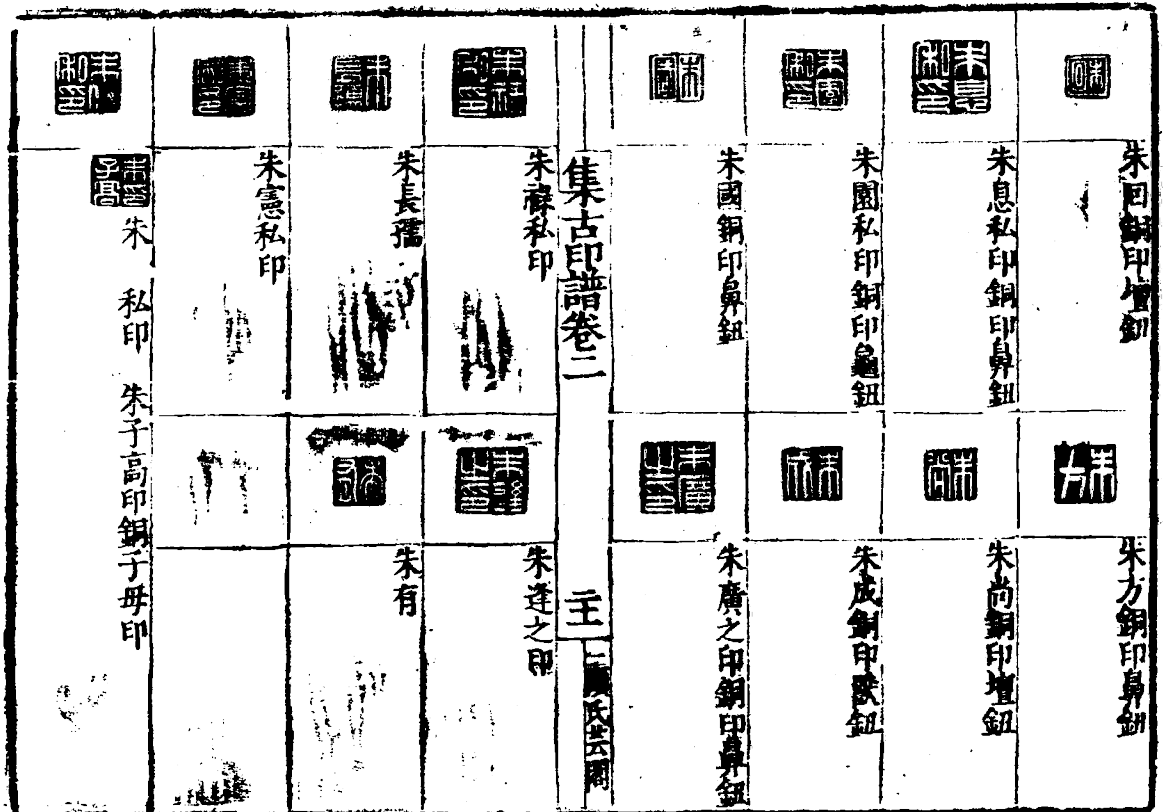 朱回銅印壇鈕
朱方銅印鼻鈕
朱息私印銅印鼻鈕
朱尚銅印壇鈕
朱園私印銅印龜鈕
朱成銅印獸鈕
朱國銅印鼻鈕
朱廣之印銅印鼻鈕
集古印譜卷二
二十
顧氏芸閣
朱祿私印
朱逢之印
朱長孺
朱有
朱憲私印
朱 私印 朱子高印銅子母印